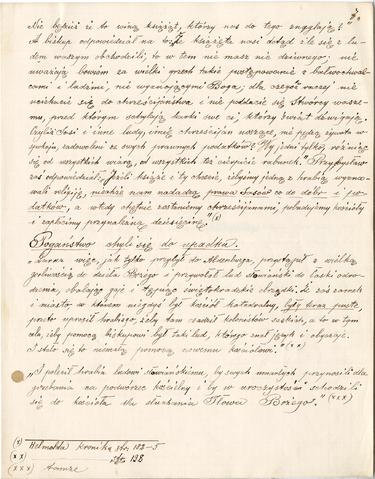 7.
Nie będzież to winą książąt, którzy nas do tego znaglają?
A biskup odpowiedział na to: Że książęta nasi dotąd źle się z lu-
dem waszym obchodzili, to w tem nie masz nic dziwnego; nie
uważają bowiem za wielki grzech takie postępowanie z bałwochwal-
cami i ludźmi, nie wyznającymi Boga; dla czegoż raczej nie
uciekacie się do chrześcijaństwa i nie poddacie się Stwórcy wasze-
mu, przed którym schylają karki swe ci, którzy świat dźwigają.
Czyliż Sasi i inne ludy, imię chrześcijan noszące, nie pędzą żywota w
spokoju, zadowoleni ze swych prawnych podatków? Wy jedni tylko różniąc
się od wszystkich wiarą, od wszystkich też cierpicie rabunek." Przybysław
zaś odpowiedział: "Jeśli książę i ty chcecie, żebyśmy jedną z hrabią wyzna-
wali religję, niechże nam nadadzą prawa Sasów co do dóbr i po-
datków, a wtedy chętnie zostaniemy chrześcijanami, pobudujemy kościoły
i zapłacimy przynależną dziesięcinę." (x)
Pogaństwo chyli się do upadku.
"Zaraz więc, jak tylko przybył do Aldenburga, przystąpił z wielką
gorliwością do dzieła Bożego i przywołał lud słowiański do łaski odro-
dzenia, obalając gaje i tępiąc świętokradzkie obrządki. Że zaś zamek
i miasto, w którem niegdyś był kościół katedralny, były teraz puste,
przeto uprosił hrabiego, żeby tam osadził kolonistów saskich, a to w tym
celu, żeby pomocą biskupowi był taki lud, którego znał język i obyczaje.
I stało się to niemałą pomocą nowemu kościołowi." (xx)
"I polecił hrabia ludowi słowiańskiemu, by swych umarłych przynosili dla
grzebania na podwórzec kościelny i by w uroczystości schodzili
się do kościoła dla słuchania Słowa Bożego." (xxx)
(x) Helmolda kronika str. 182-5
(xx) str. 198
(xxx) tamże